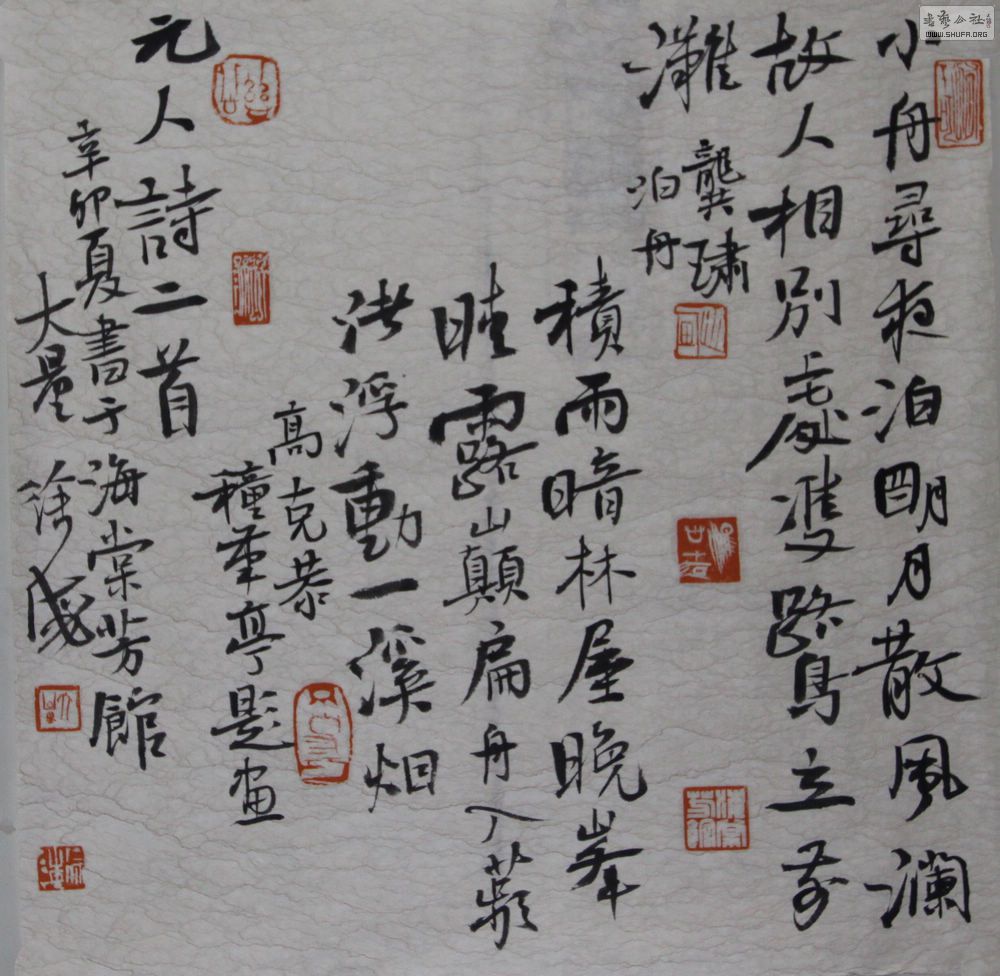 小舟尋夜泊明月散風瀾
故人相別處雙鷺立前
灘
龔璛
泊舟
積雨暗林屋晚峯
晴露巔扁舟入蘋
渚浮動一溪烟
高克恭
種筆亭題畫
元人詩二首
辛卯夏書于海棠芳館
大量 徐
书艺公社
WWW.SHUFA.ORG